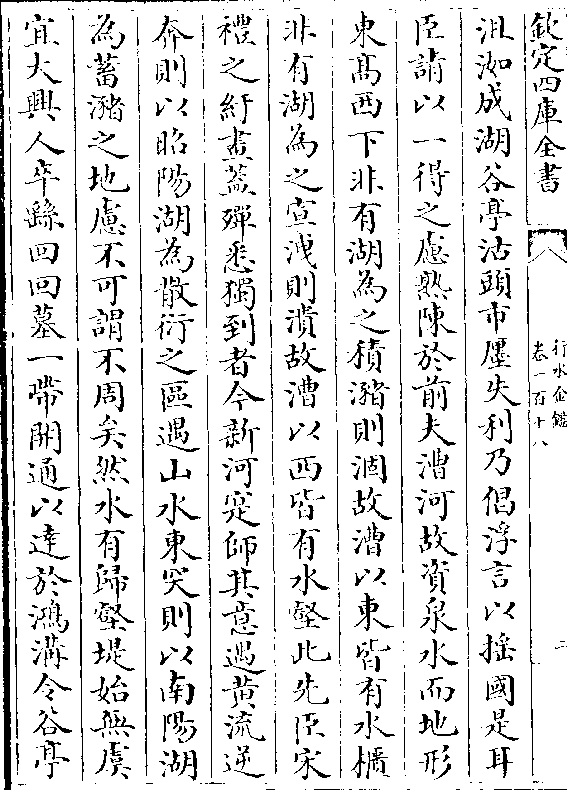 欽定四庫全書
行水金鑑
卷一百十八
二
沮洳成湖谷亭沽頭市㕓失利乃倡浮言以揺國是耳
臣請以一得之慮熟陳於前夫漕河故資泉水而地形
東髙西下非有湖為之積瀦則涸故漕以東皆有水櫃
非有湖為之宣洩則潰故漕以西皆有水壑此先臣宋
禮之紆畫葢殫悉獨到者今新河寔師其意遇黄流逆
奔則以昭陽湖為散衍之區遇山水東突則以南陽湖
為蓄瀦之地慮不可謂不周矣然水有歸壑堤始無虞
宜大興人卒繇囘囘墓一帶開通以達於鴻溝令谷亭